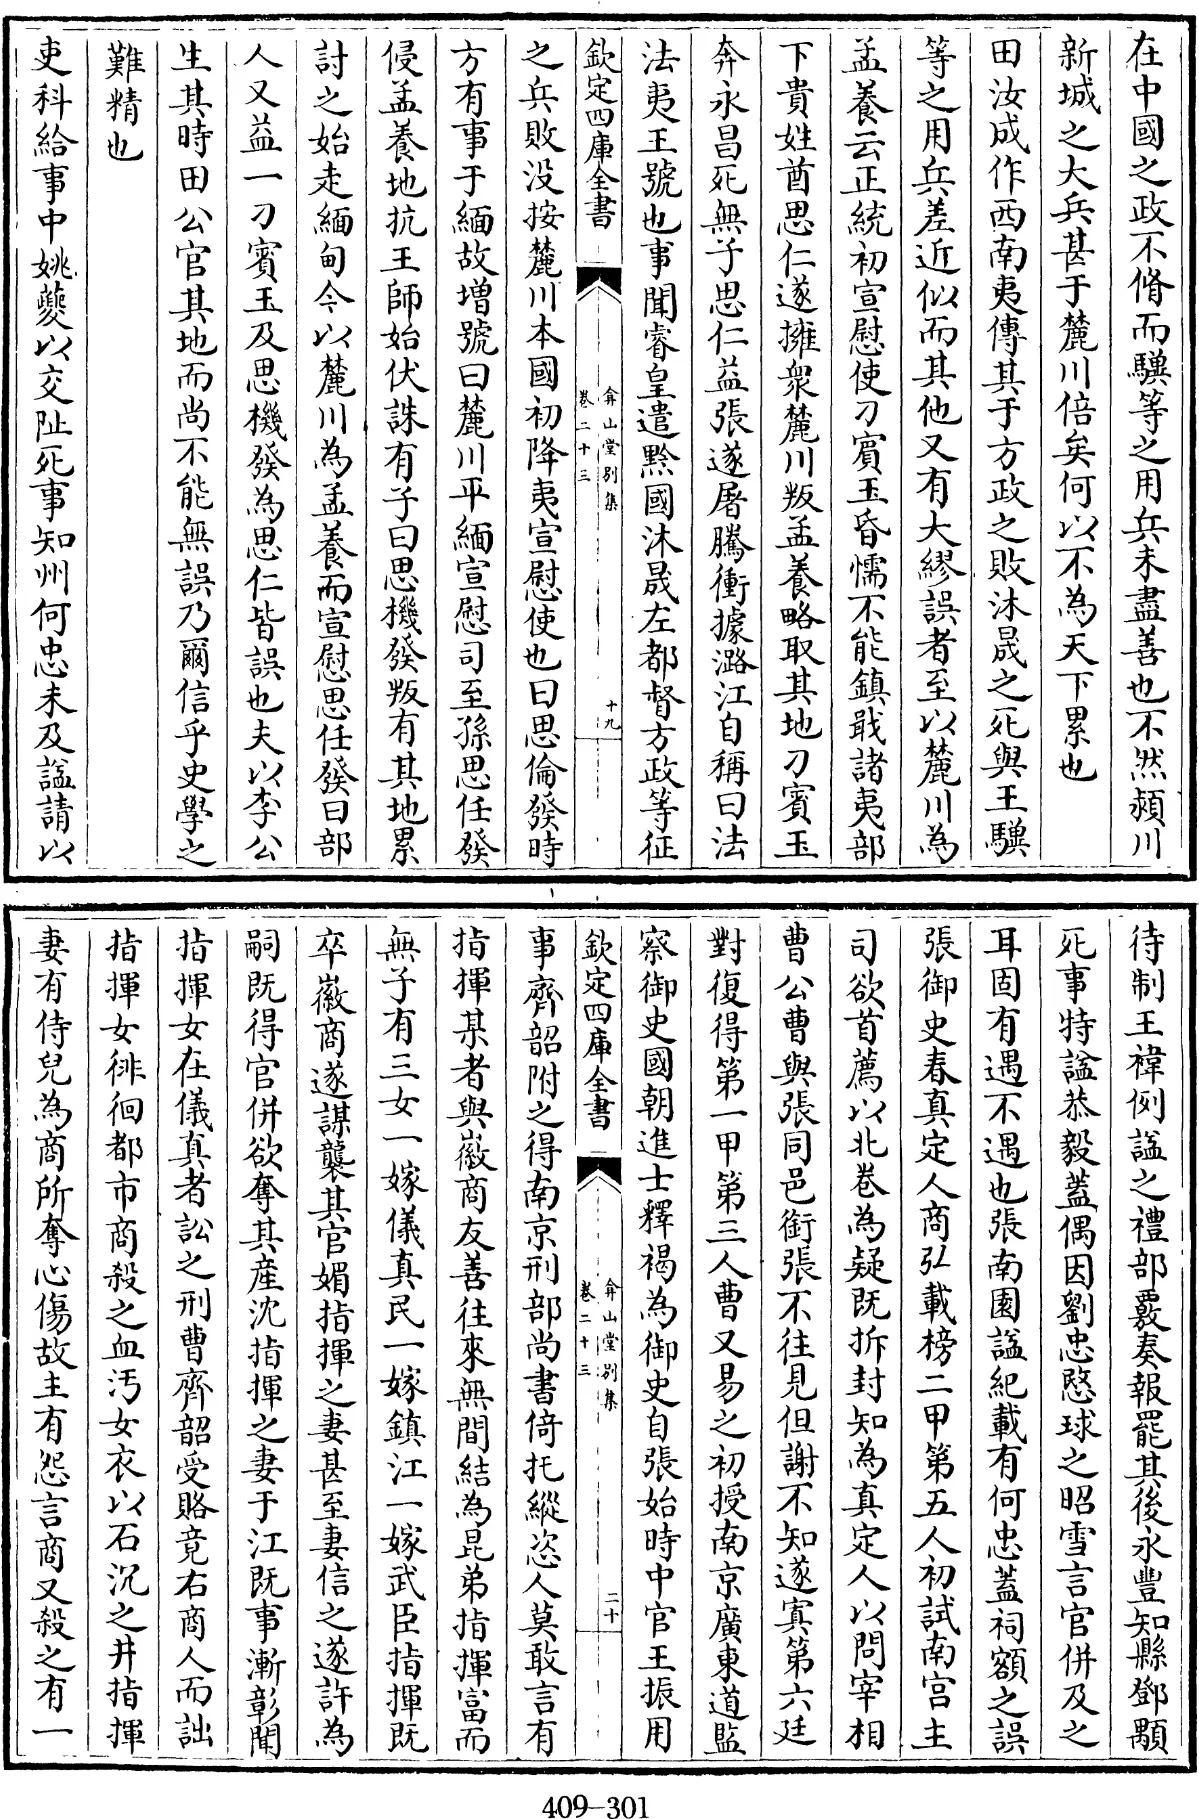 在中國之政不脩而驥等之用兵未盡善也不然潁川
新城之大兵甚于麓川倍矣何以不為天下累也
田汝成作西南夷傳其于方政之敗沐晟之死與王驥
等之用兵差近似而其他又有大繆誤者至以麓川為
孟養云正統初宣慰使刁賓玉昏懦不能鎮戢諸夷部
下貴姓酋思仁遂擁衆麓川叛孟養略取其地刁賓玉
奔永昌死無子思仁益張遂屠騰衝據潞江自稱曰法
法夷王號也事聞睿皇遣黔國沐晟左都督方政等征
欽定四庫全書
弇山堂别集
卷二十三
十九
之兵敗没按麓川本國初降夷宣慰使也曰思倫發時
方有事于緬故增號曰麓川平緬宣慰司至孫思任發
侵孟養地抗王師始伏誅有子曰思機發叛有其地累
討之始走緬甸今以麓川為孟養而宣慰思任發曰部
人又益一刁賓玉及思機發為思仁皆誤也夫以李公
生其時田公官其地而尚不能無誤乃爾信乎史學之
難精也
吏科給事中姚夔以交阯死事知州何忠未及謚請以
待制王禕例謚之禮部覈奏報罷其後永豐知縣鄧顒
死事特謚恭毅蓋偶因劉忠愍球之昭雪言官併及之
耳固有遇不遇也張南園謚紀載有何忠蓋祠額之誤
張御史春真定人商弘載榜二甲第五人初試南宫主
司欲首薦以北卷為疑既拆封知為真定人以問宰相
曹公曹與張同邑銜張不往見但謝不知遂寘第六廷
對復得第一甲第三人曹又易之初授南京廣東道監
察御史國朝進士釋褐為御史自張始時中官王振用
欽定四庫全書
弇山堂别集
卷二十三
二十
事齊韶附之得南京刑部尚書倚托縱恣人莫敢言有
指揮某者與徽商友善往來無間結為昆弟指揮富而
無子有三女一嫁儀真民一嫁鎮江一嫁武臣指揮既
卒徽商遂謀襲其官媚指揮之妻甚至妻信之遂許為
嗣既得官併欲奪其産沈指揮之妻于江既事漸彰聞
指揮女在儀真者訟之刑曹齊韶受賂竟右商人而詘
指揮女徘徊都市商殺之血汚女衣以石沉之井指揮
妻有侍兒為商所奪心傷故主有怨言商又殺之有一
409-301